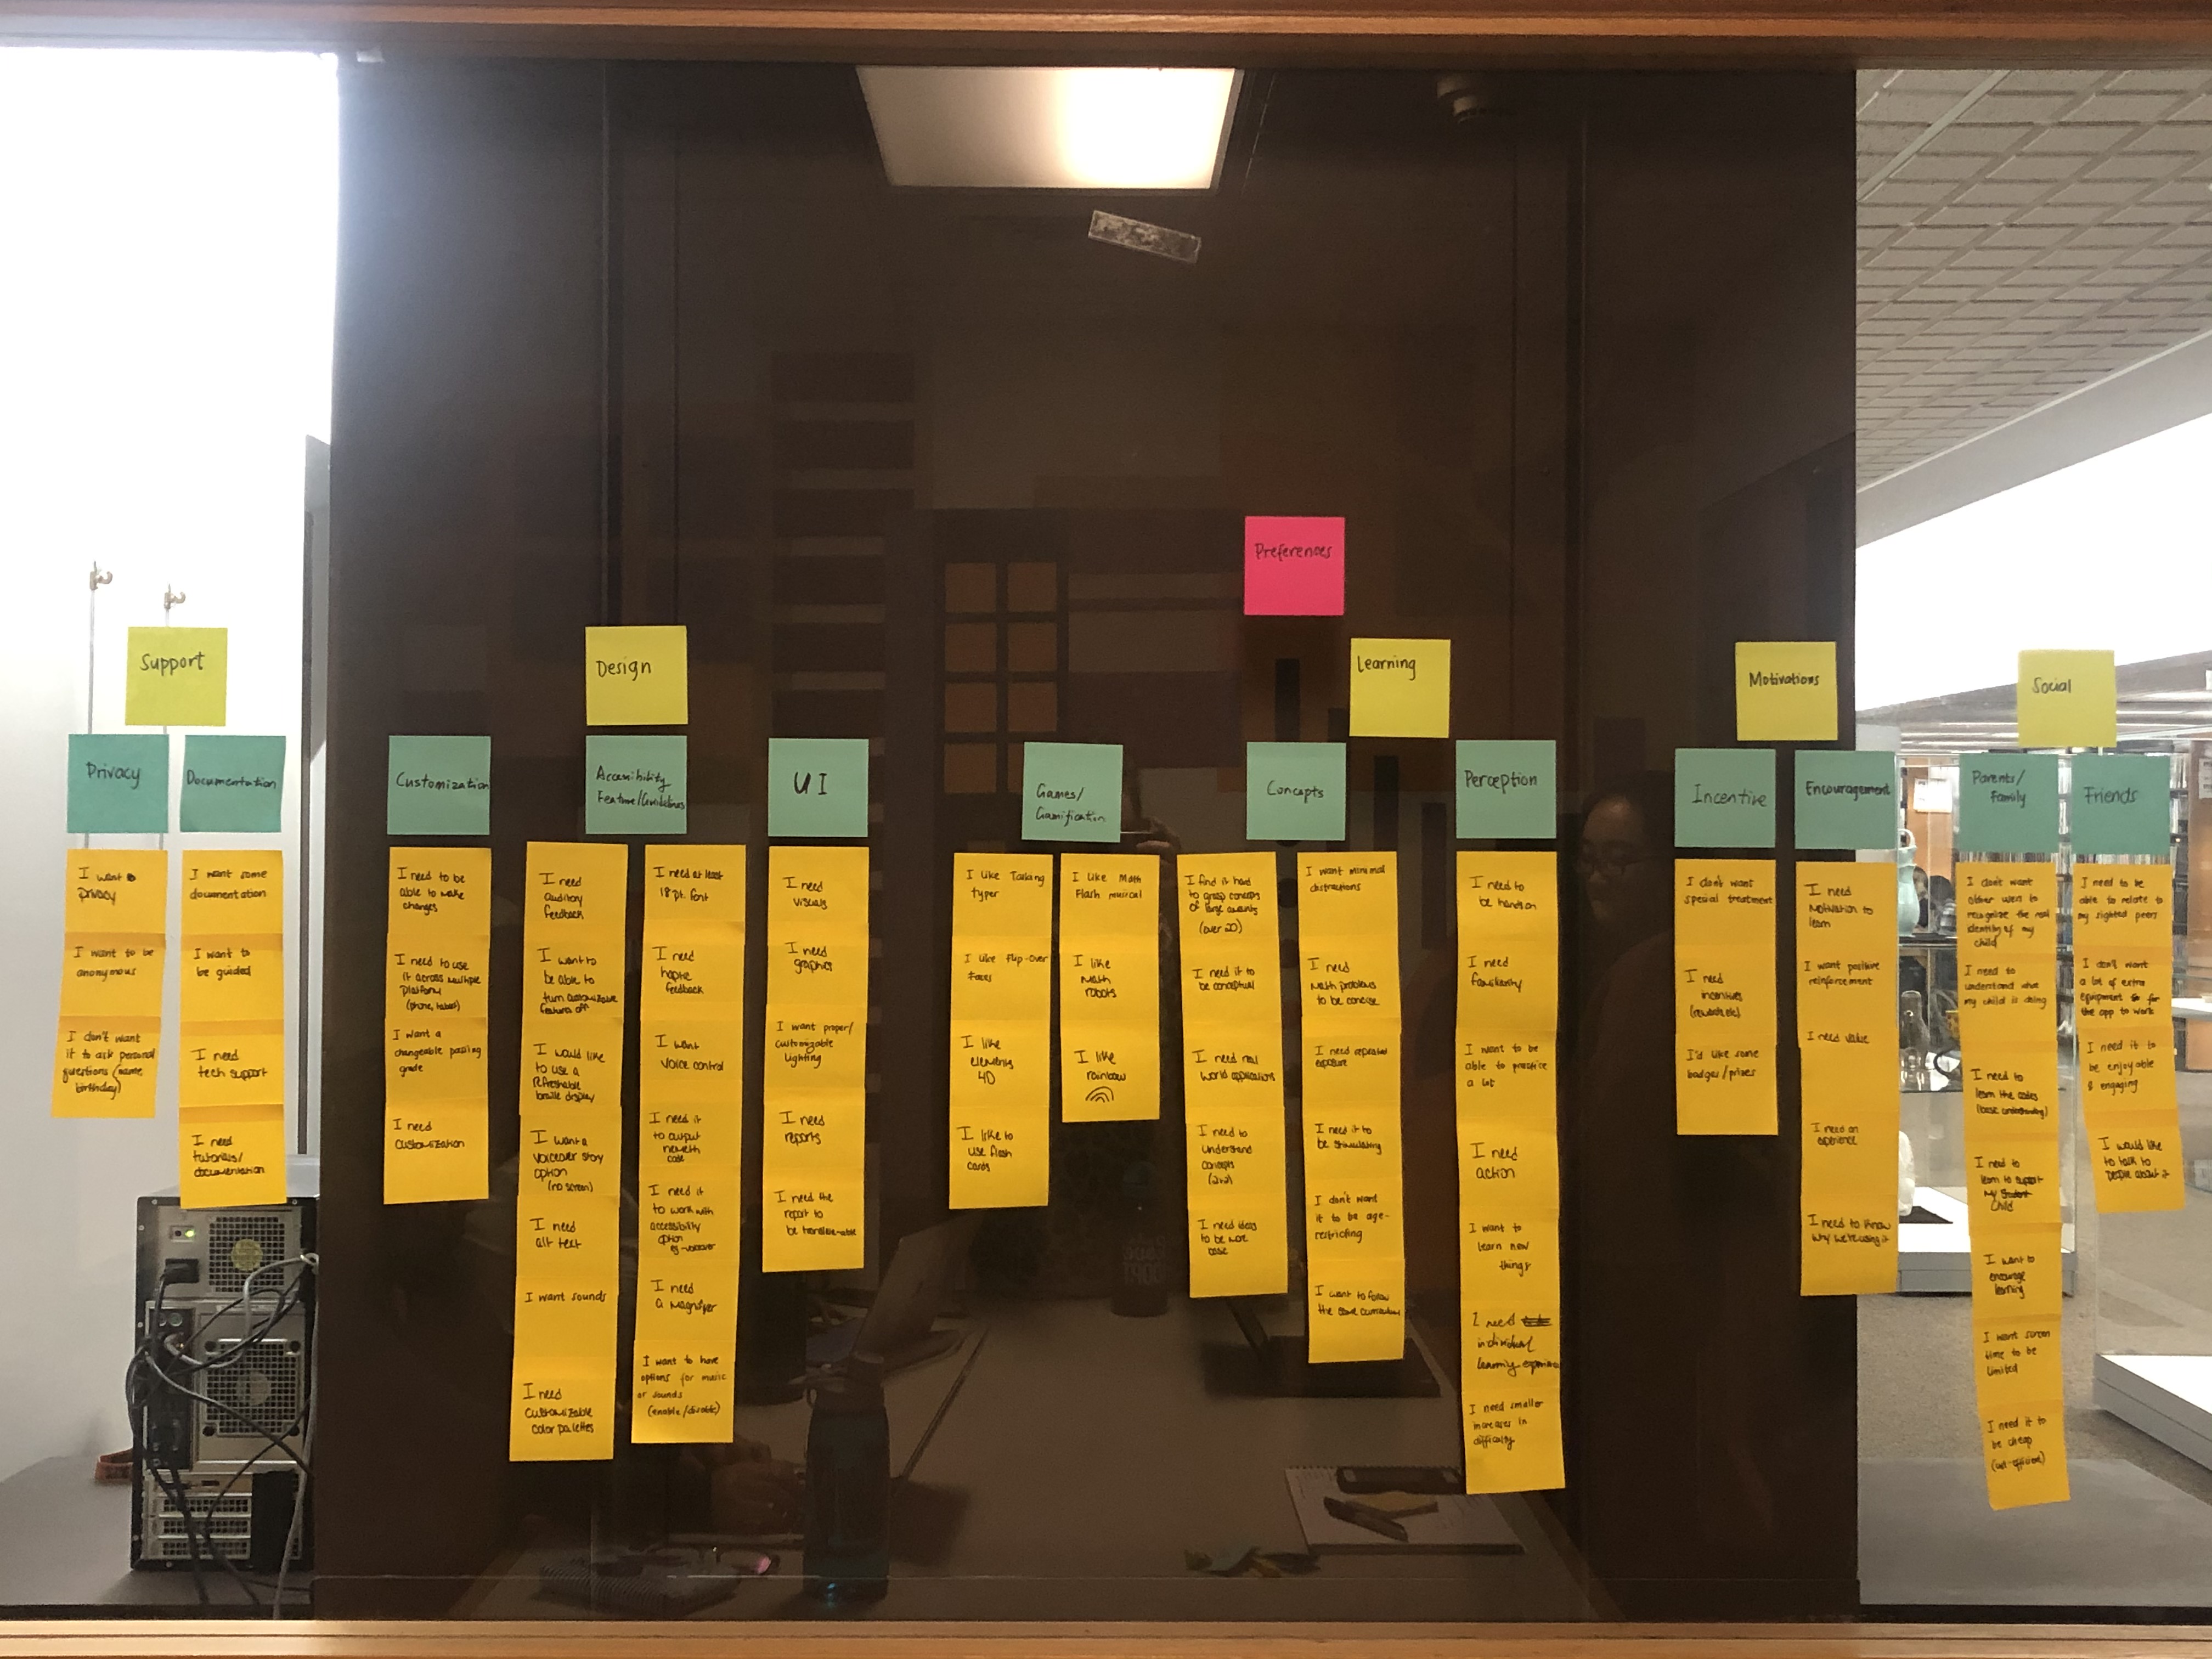 Preferences
Support
Design
Learning
Motivations
Social
Privacy
Documentation
Customization
Accessibility
Feature/Guidelines
UI
Games/
Gamification
Concepts
Perception
Incentive
Encouragement
Parents/
Family
Friends
I want
privacy
I want to be
anonymous
I don't want
it to ask personal
questions (name
birthday)
I want some
documentation
I want to
be guided
I need
tech support
I need
tutorials/
documentation
I need to be
able to make
changes
I need to use
it across multiple
platform
(phone, tablet)
I want a
changeable passing
grade
I need
customization
I need
auditory
feedback
I want to
be able to
turn customizable
features off
I would like
to use a
refreshable
braille display
I want a
voiceover story
option
(no screen)
I need
alt text
I want sounds
I need
customizable
color palettes
I need at least
18 pt. font
I need
haptic
feedback
I want
voice control
I need it
to output
nemeth
code
I need it
to work with
accessibility
option
eg-voiceover
I need
a magnifier
I want to have
options for music
or sounds
(enable/disable)
I need
visuals
I need
graphics
I want proper/
customizable
lighting
I need
reports
I need the
report to
be
I like Talking
typer
I like Flip-Over
Faces
I like
elements
4D
I like to
use flash
cards
I like Math
Flash musical
I like
Math
robots
I like
rainbow
I find it hard
to grasp concepts
of large amounts
(over 20)
I need it to
be conceptual
I need real
world applications
I need to
understand
concepts
(2+2)
I need ideas
to be more
base
I want minimal
distractions
I need
math problems
to be concise
I need repeated
exposure
I need it to
be stimulating
I don't want
it to be age-
restricting
I want to follow
the core curriculum
I need to
be hands on
I need
familiarity
I want to be
able to practice
a lot
I need
action
I want to
learn new
things
I need
individual
learning experience
I need smaller
increases in
difficulty
I don't want
special treatment
I need
incentives
(rewards, etc)
I'd like some
badges/prizes
I need
motivation to
learn
I want positive
reinforcement
I need value
I need an
experience
I need to know
why we're using it
I don't want
other users to
recognize the real
identity of my
child
I need to
understand what
my child is doing
I need to
learn the codes
(base understanding)
I need to
learn to support
my
child
I want to
encourage
learning
I want screen
time to be
limited
I need it to
be cheap
I need to be
able to relate to
my sighted peers
I don't want
a lot of extra
equipment for
the app to work
I need it to
be enjoyable
& engaging
I would like
to talk to
people about it